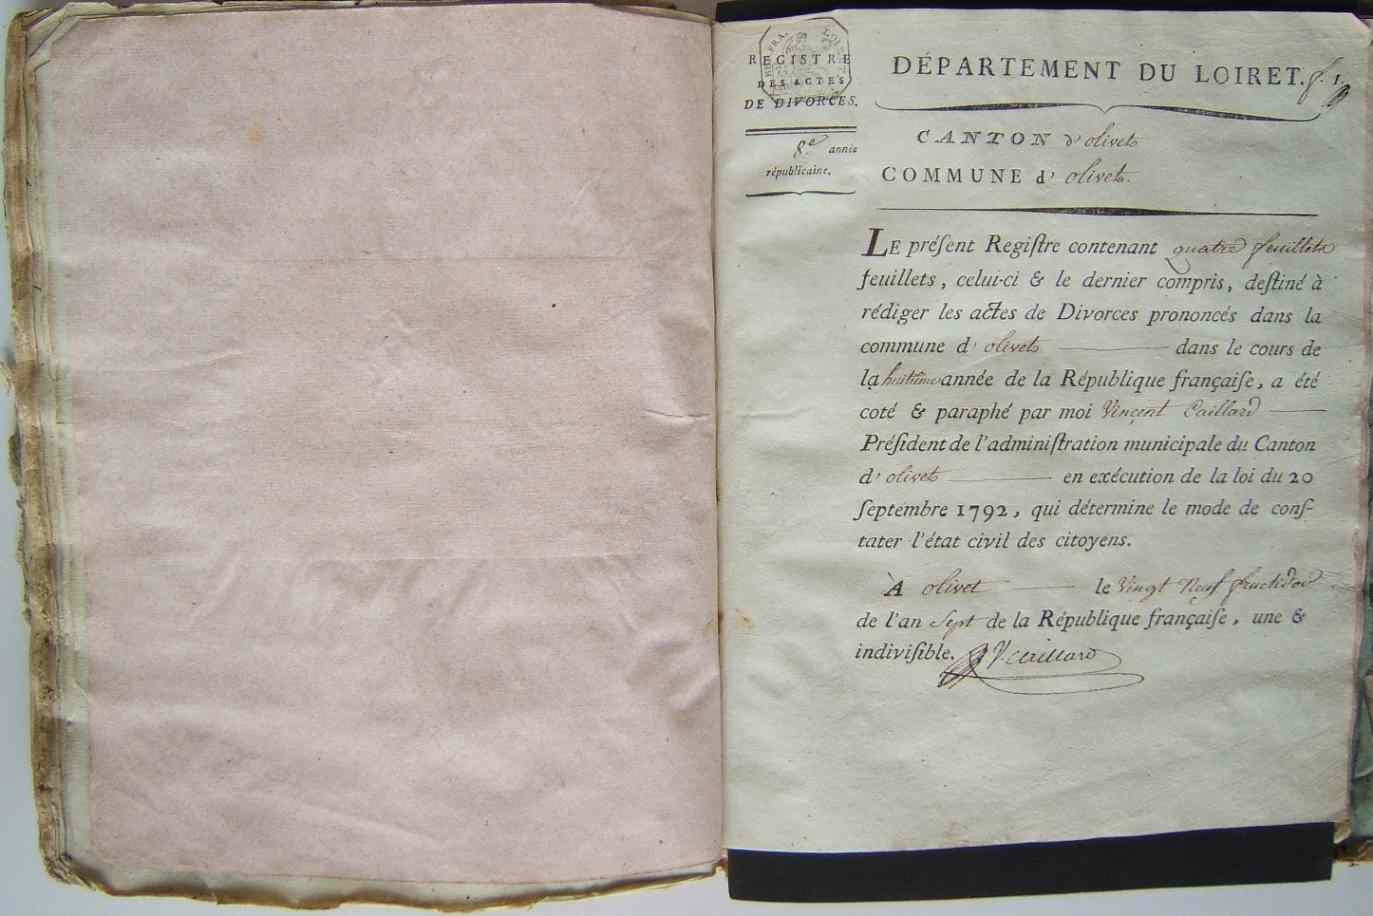 REGISTRE
DES ACTES
DE DIVORCES.
8.e année
républicaine.
DÉPARTEMENT DU LOIRET. f. 1.
CANTON d'olivet
COMMUNE d' olivet.
LE préſent Regiſtre contenant quatre feuillets
feuillets, celui-ci & le dernier compris, deſtiné à
rédiger les actes de Divorces prononcés dans la
commune d' olivet dans le cours de
la huitième année de la République françaiſe, a été
coté & paraphé par moi Vincent Caillard
Préſident de l'adminiſtration municipale du Canton
d' olivet en exécution de la loi du 20
ſeptembre 1792, qui détermine le mode de conſ-
tater l'état civil des citoyens.
À olivet le Vingt Neuf fructidor
de l'an Sept de la République françaiſe, une &
indiviſible. V. Caillard